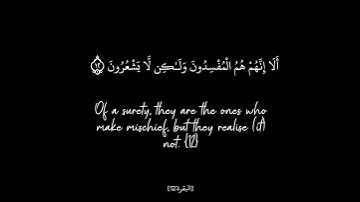 أَلَا إِنَّهُمْ هُمُ الْمُفْسِدُونَ وَلَٰكِن لَّا يَشْعُرُونَ ١٢
Of a surety, they are the ones who
make mischief, but they realise (d)
not. {12}
[البقرة:12]